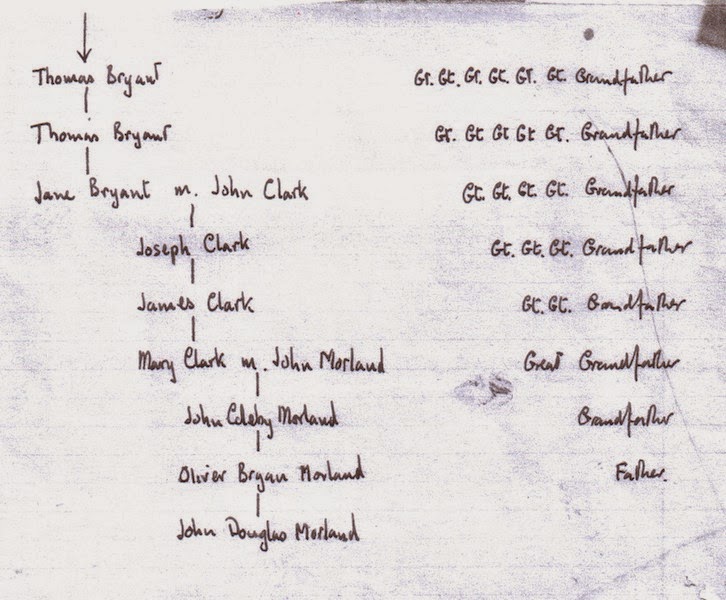 Thomas Bryant Gt. Gt. Gt. Gt. Gt. Gt. Grandfather
Thomas Bryant Gt. Gt Gt Gt Gt. Grandfather
Jane Bryant m. John Clark Gt. Gt. Gt. Gt. Grandfather
Joseph Clark Gt. Gt. Gt. Grandfather
James Clark Gt. Gt. Grandfather
Mary Clark m. John Morland Great Grandfather
John Coleby Morland Grandfather
Olivier Bryan Morland Father.
John Douglas Morland